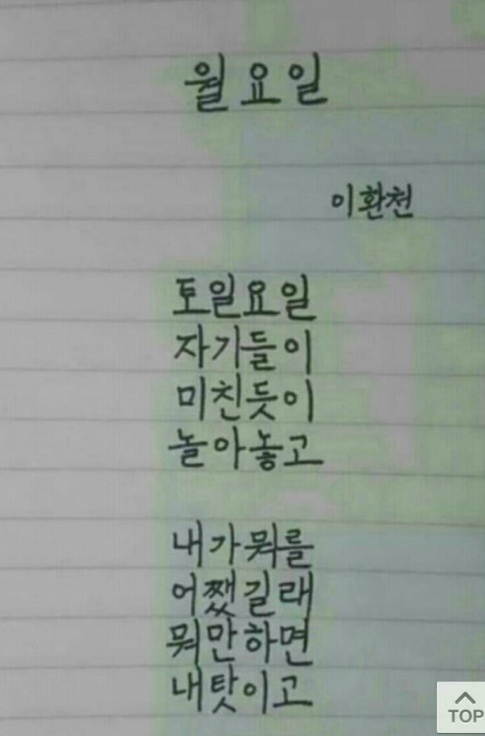 월요일
이환천
토일요일
자기들이
미친듯이
놀아놓고
내가뭐를
어쨌길래
뭐만하면
내탓이고
TOP